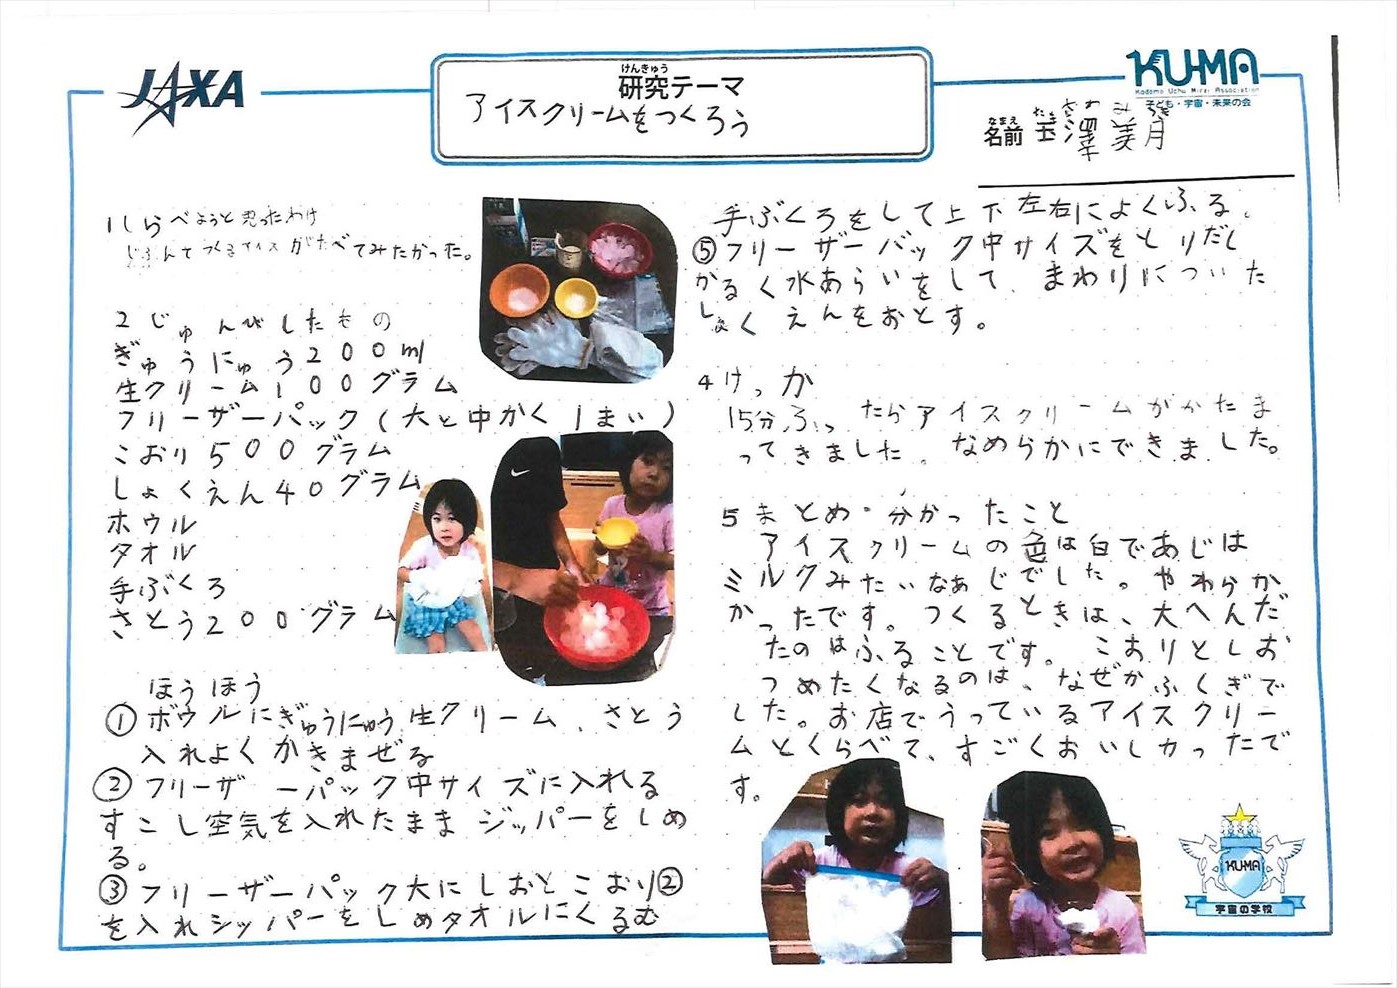 JAXA
けんきゅう
研究テーマ
アイスクリームをつくろう
KU-MA
Kodomo Uchu Mirai Association
子ども・宇宙・未来の会
なまえ
名前 玉澤美月
1しらべようと思ったわけ
じぶんでつくるアイスがたべてみたかった。
2じゅんびしたもの
ぎゅうにゅう200ml
生クリーム100グラム
フリーザーパック(大と中かく1まい)
こおり500グラム
しょくえん40グラム
ホウル
タオル
手ぶくろ
さとう200グラム
ほうほう
①ボウルにぎゅうにゅう,生クリーム、さとう
入れよくかきまぜる
②フリーザーパック中サイズに入れる
すこし空気を入れたままジッパーをしめ
る。
③フリーザーパック大にしおとこおり②
を入れシッパーをしめタオルにくるむ
手ぶくろをして上下左右によくふる。
⑤フリーザーバック中サイズをとりだし
かるく水あらいをして、まわりについた
しょくえんをおとす。
4けっか
15分ふったらアイスクリームがかたま
ってきました。なめらかにできました。
5まとめ・分かったこと
アイスクリームの色は白であじは
ミルクみたいなあじでした。やわらか
かったです。つくるときは、大へんだ
たのはふることです。こおりとしお
つめたくなるのは、なぜかふくぎで
した。お店でうっているアイスクリー
ムとくらべて、すごくおいしかったで
す。
KU-MA
宇宙の学校